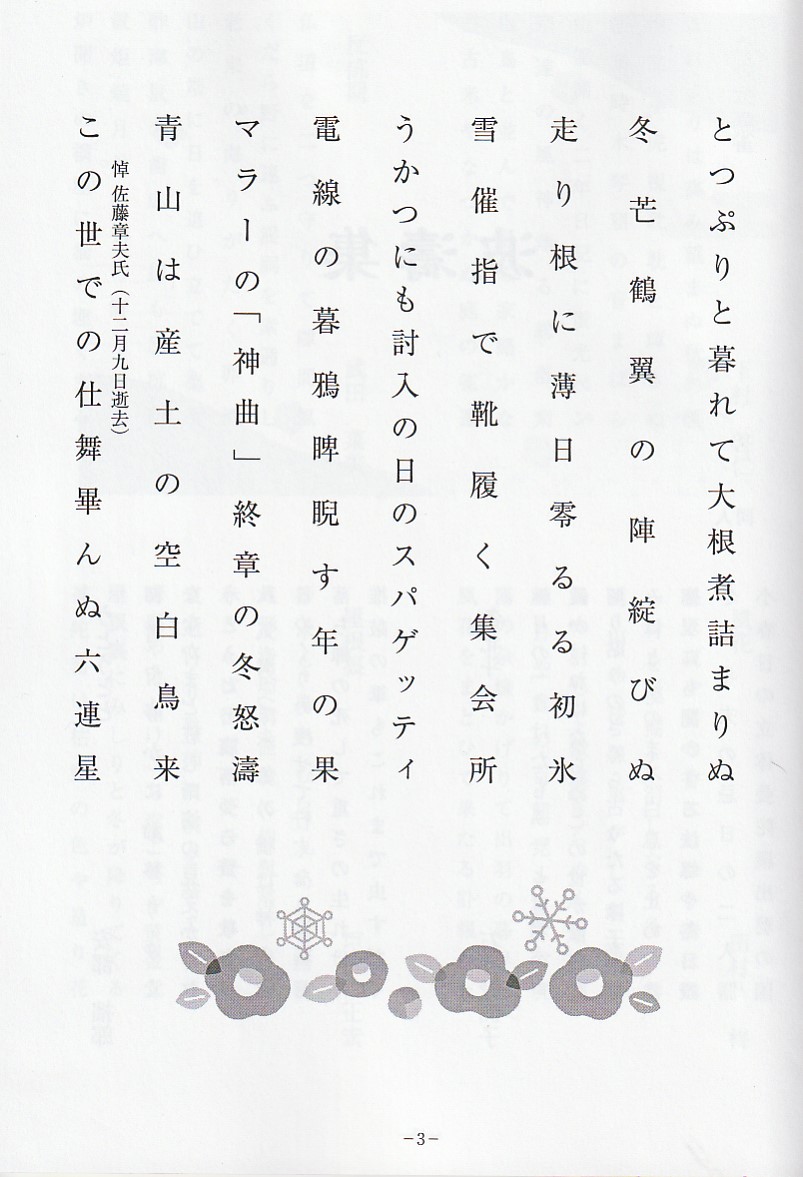 とつぷりと暮れて大根煮詰まりぬ
冬芒鶴翼の陣綻びぬ
走り根に薄日零るる初氷
雪催指で靴履く集会所
うかつにも討入の日のスパゲッティ
電線の暮鴉睥睨す年の果
マラーの「神曲」終章の冬怒濤
青山は産土の空白鳥来
悼 佐藤章夫氏（十二月九日逝去）
この世での仕舞畢んぬ六連星
－3－